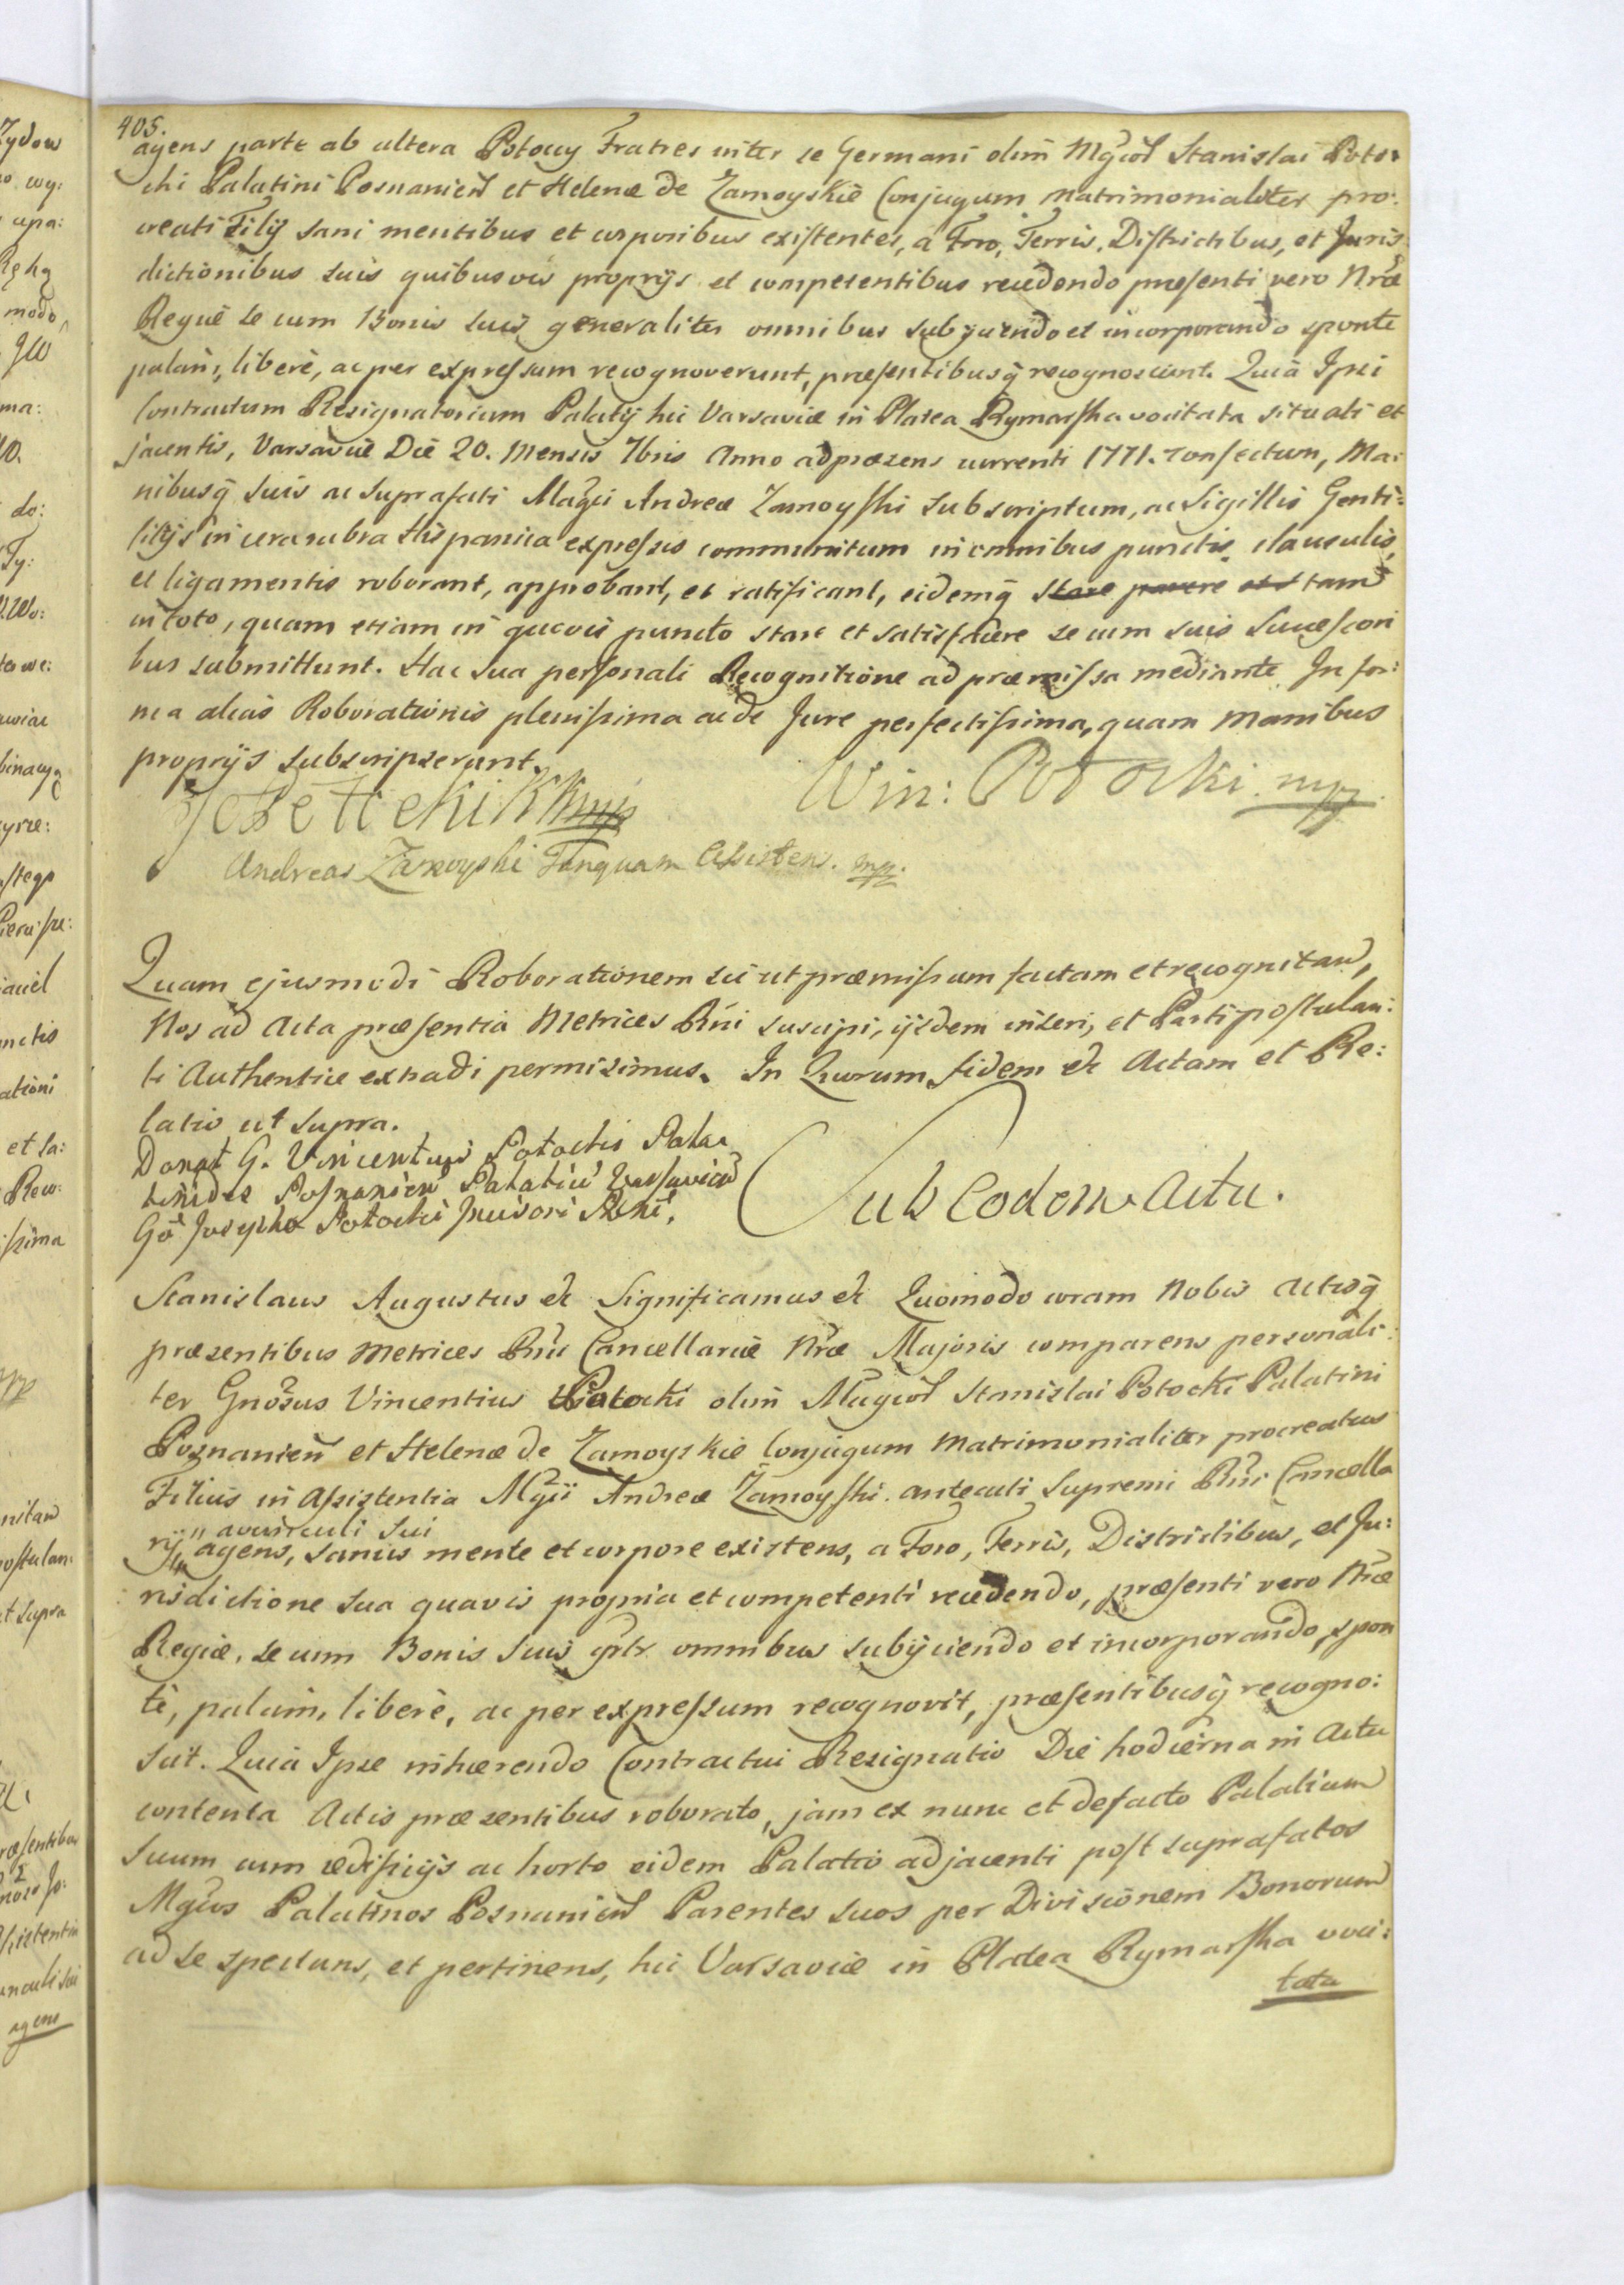 405.
agens parte ab altera Potoccy Fratres inter se Germani olim Mgcöl Stanislai Poto:
cki Palatini Posnanień et Helenæ de Zamoyskie Conjugum matrimonialiter pro:
creati Filij sani mentibus et corporibus existentes, a Foro, Terris, Districtibus, et Juris
dictionibus suis quibusvis proprijs et competentibus recedendo præsenti vero Nræ
Regiæ se cum Bonis suis generaliter omnibus subjiciendo et incorporando sponte
palam, liberè, ac per expressum recognoverunt, præsentibusq recognoscunt. Quia Ipsi
Contractum Resignatorium Palatij hic Varsaviæ in Platea Rymarska vocitata situati et
jacentis, Varsaviæ Die 20. Mensis 7bris Anno ad præsens currenti 1771. confectum, Ma:
nibusq suis ac suprafati Magci Andreæ Zamoyski subscriptum, ac Sigillis Genti:
litijs in cera rubra Hispanica expressis communitum in omnibus punctis, clausulis,
et ligamentis roborant, approbant, et ratificant, eidemq stare tam
in toto, quam etiam in quovis puncto stare et satisfacere se cum suis Successori
bus submittunt. Hac sua personali Recognitione ad præmissa mediante In for:
ma alias Roborationis plenissima ac de Jure perfectissima, quam manibus
proprijs subscripserunt.
Win: Potocki. mpp.
Andreas Zamoyski Tanquam Assistens. mpp.
Quam ejusmodi Roborationem sic ut præmissum factam et recognitam,
Nos ad Acta præsentia Metrices Rni suscipi, ijsdem inseri, et Parti postulan:
ti Authentice extradi permisimus. In Quorum fidem &c Actum et Re:
latio ut supra.
Donat G. Vincentius Potockis Pala
tinides Posnanień Palatiū Varsavień
Gō Josepho Potockis Incisori Rni.
Sub Eodem Actu.
Stanislaus Augustus &c Significamus &c Quomodo coram Nobis Actisq
præsentibus Metrices Rni Cancellariæ Nræ Majoris comparens personali:
ter Gnösus Vincentius Potocki olim Mägcöl Stanislai Potocki Palatini
Poznanień et Helenæ de Zamoyskie Conjugum Matrimonialiter procreatus
Filius in Assistentia Mgci Andreæ Zamoyski anteacti Supremi Rni Cancella
avunculi sui
rij agens, sanus mente et corpore existens, a Foro, Terris, Districtibus, et Ju:
risdictione sua quavis propria et competenti recedendo, præsenti vero Nræ
Regiæ, se cum Bonis suis gnlr omnibus subijciendo et incorporando, spon
te, palàm, liberè, ac per expressum recognovit, præsentibusq recogno:
scit. Quia Ipse inhærendo Contractui Resignatio Die hodierna in Actu
contenta Actis præsentibus roborato, jam ex nunc et de facto Palatium
Suum cum ædificijs ac horto eidem Palatio adjacenti post suprafatos
Mgcos Palatinos Posnanień Parentes suos per Divisionem Bonorum
ad se spectans, et pertinens, hic Varsaviæ in Platea Rymarska voci:
tata